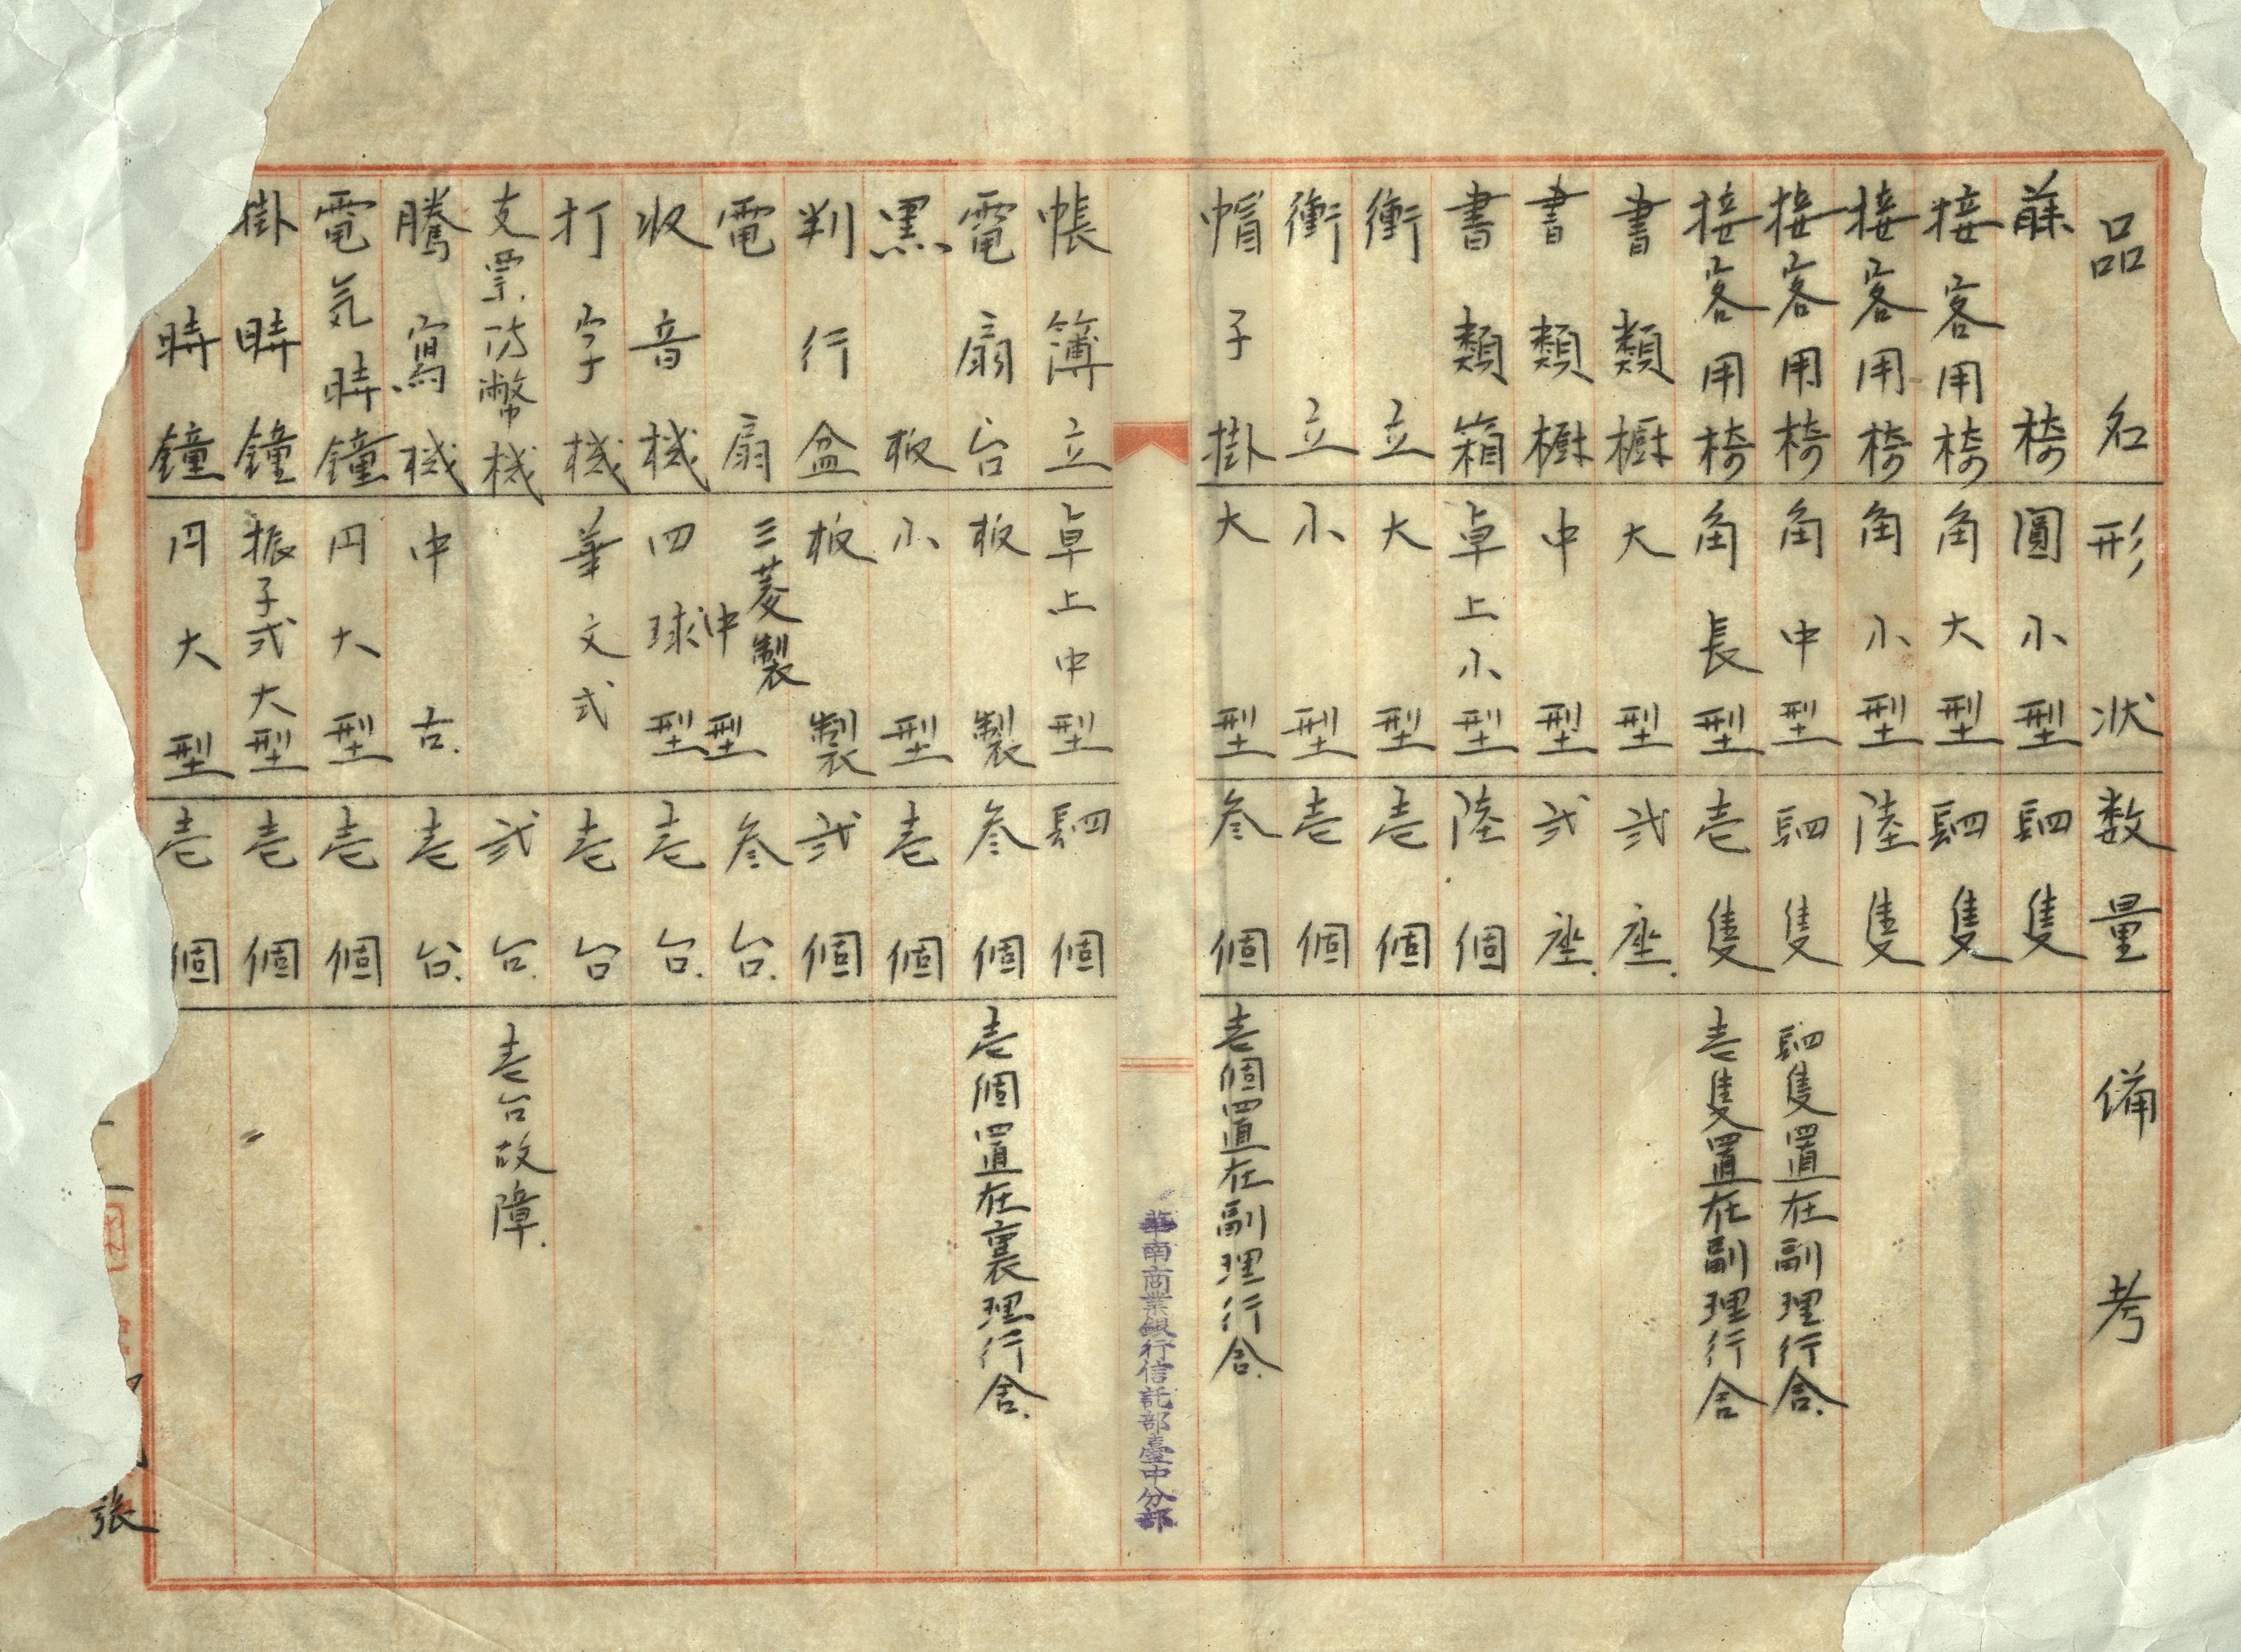 品名 形状 数量 備考
藤椅 圓小型 䦉隻
接客用椅 角大型 䦉隻
接客用椅 角小型 陸隻
接客用椅 角中型 䦉隻 䦉隻置在副理行舍.
接客用椅 角長型 壱隻 壱隻置在副理行舍
書類櫥 大型 弐座.
書類櫥 中型 弐座.
書類箱 卓上小型 陸個
衝立 大型 壱個
衝立 小型 壱個
帽子掛 大型 叁個 壱個置在副理行舍.
華南商業銀行信託部臺中分部
帳簿立 卓上中型 䦉個
電扇台 板製 叁個 壱個置在裏理行舍.
黒板 小型 壱個
判行盆 板製 弐個
電扇 三菱製中型 叁台.
收音機 四球型 壱台.
打字機 華文式 壱台
支票防幣機 弐台. 壱台故障.
騰寫機 中古. 壱台.
電気時鐘 円大型 壱個
掛時鐘 振子式大型 壱個
時鐘 円大型 壱個
張